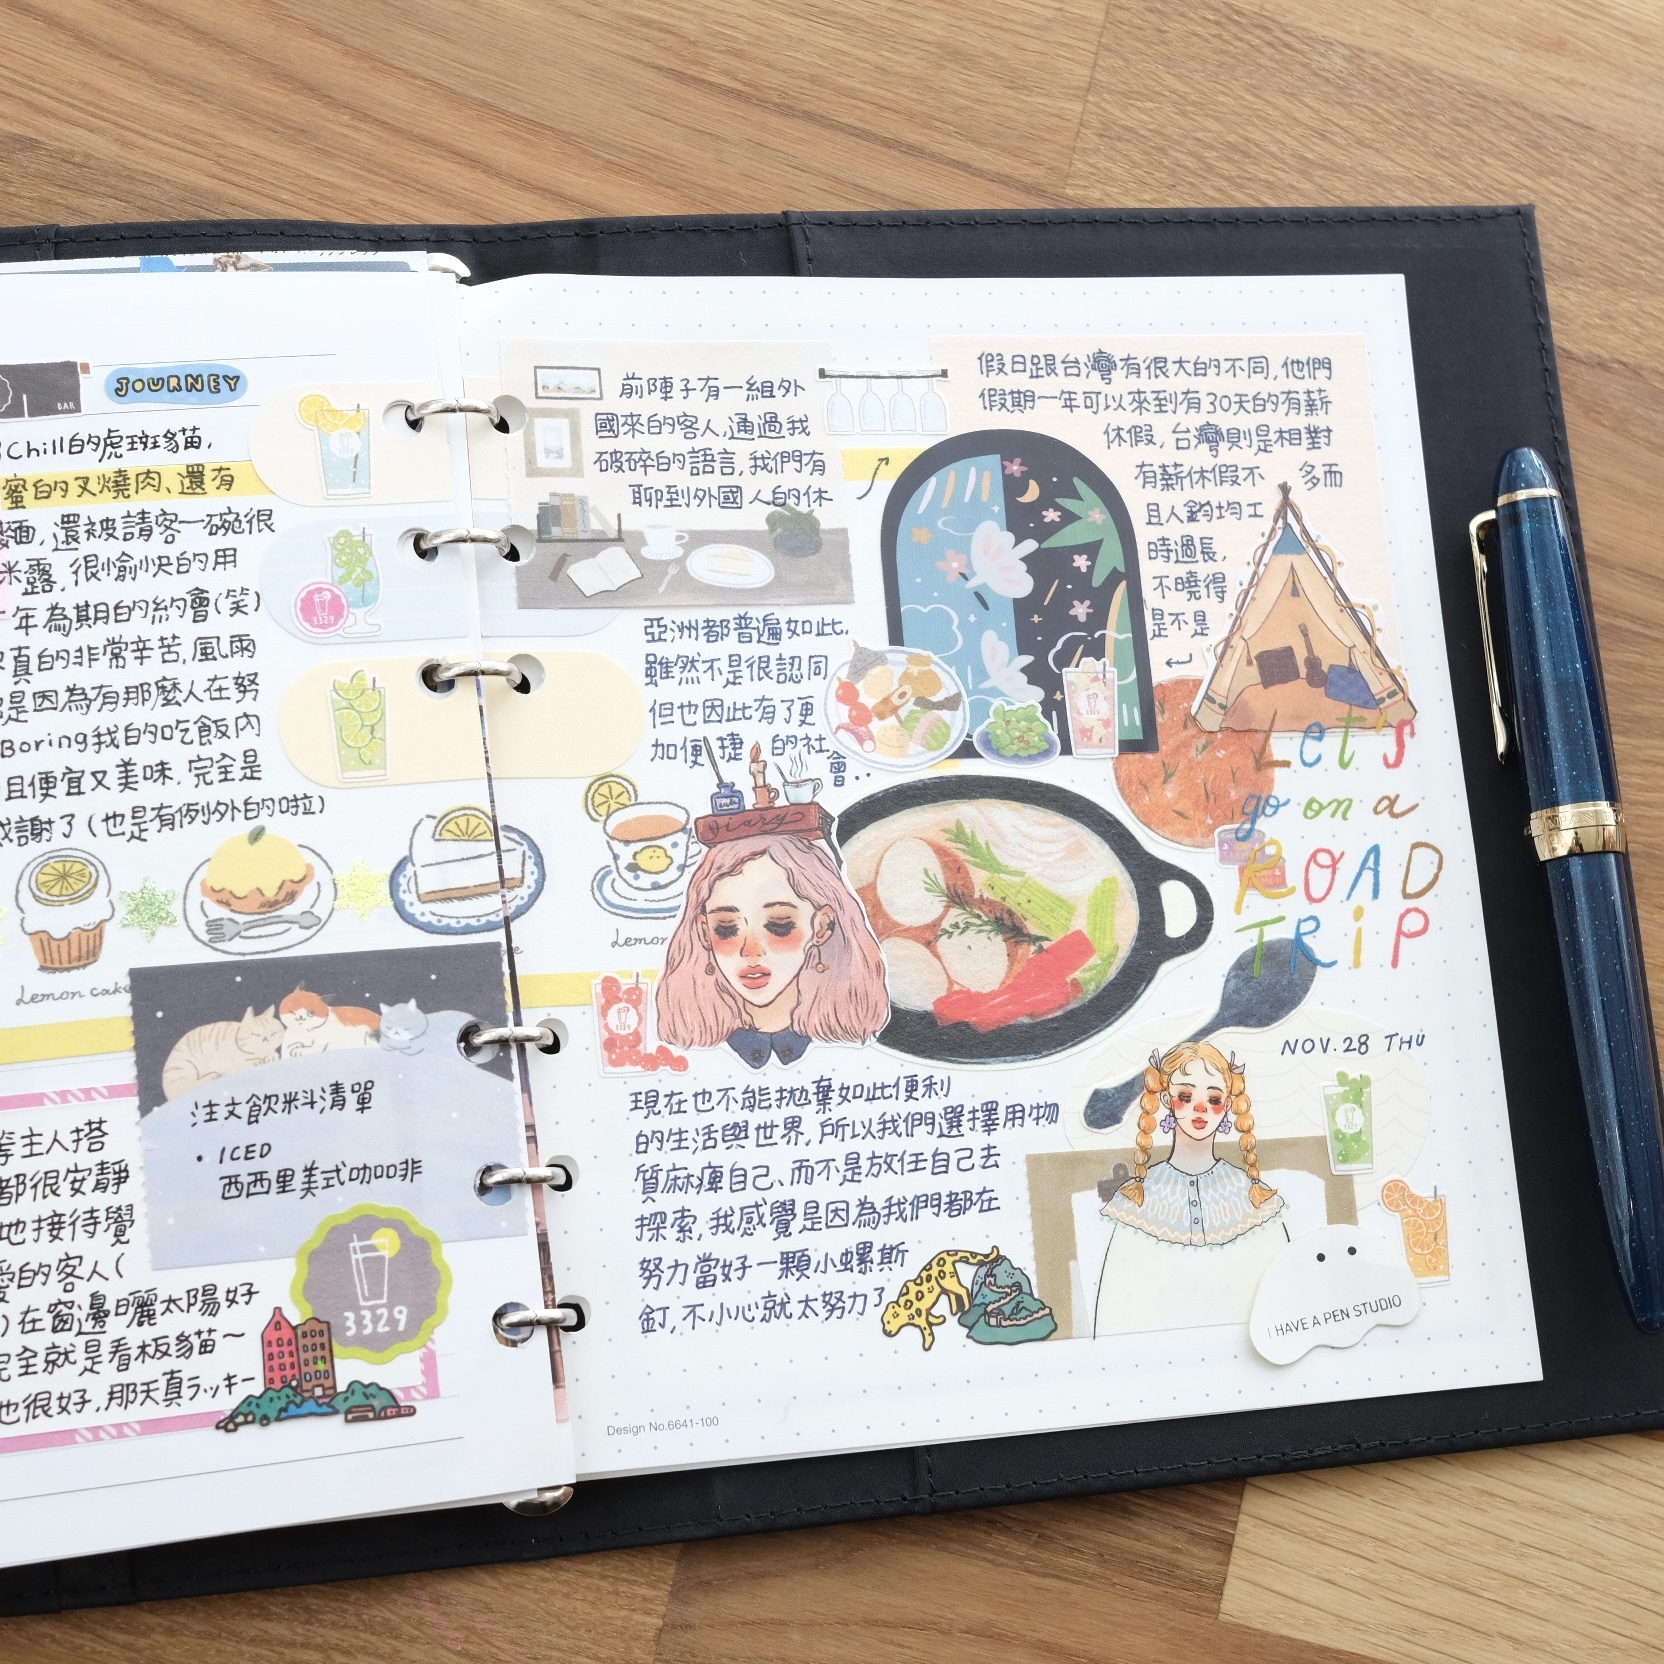 BAR
JOURNEY
Chill的虎斑貓,
蜜的叉燒肉、還有
麵,還被請客一碗很
米露,很愉快的用
年為期的約會(笑)
真的非常辛苦,風雨
是因為有那麼人在努
Boring我的吃飯內
且便宜又美味.完全是
感謝了(也是有例外的啦)
Lemon cake
注文飲料清單
・ICED
西西里美式咖啡
主人搭
都很安靜
地接待覺
愛的客人(
)在窗邊曬太陽好
完全就是看板貓~
也很好,那天真ラッキー
3329
前陣子有一組外
國來的客人,通過我
破碎的語言,我們有
聊到外國人的休
假日跟台灣有很大的不同,他們
假期一年可以來到有30天的有薪
休假,台灣則是相對
有薪休假不多而
且人鈞均工
時過長,
不曉得
是不是
亞洲都普遍如此,
雖然不是很認同
但也因此有了更
加便捷的社
會..
ink
Diary
Let's
go on a
ROAD
TRiP
NOV.28 THU
現在也不能拋棄如此便利
的生活與世界,所以我們選擇用物
質麻痺自己、而不是放任自己去
探索,我感覺是因為我們都在
努力當好一顆小螺斯
釘,不小心就太努力了
I HAVE A PEN STUDIO
Design No.6641-100